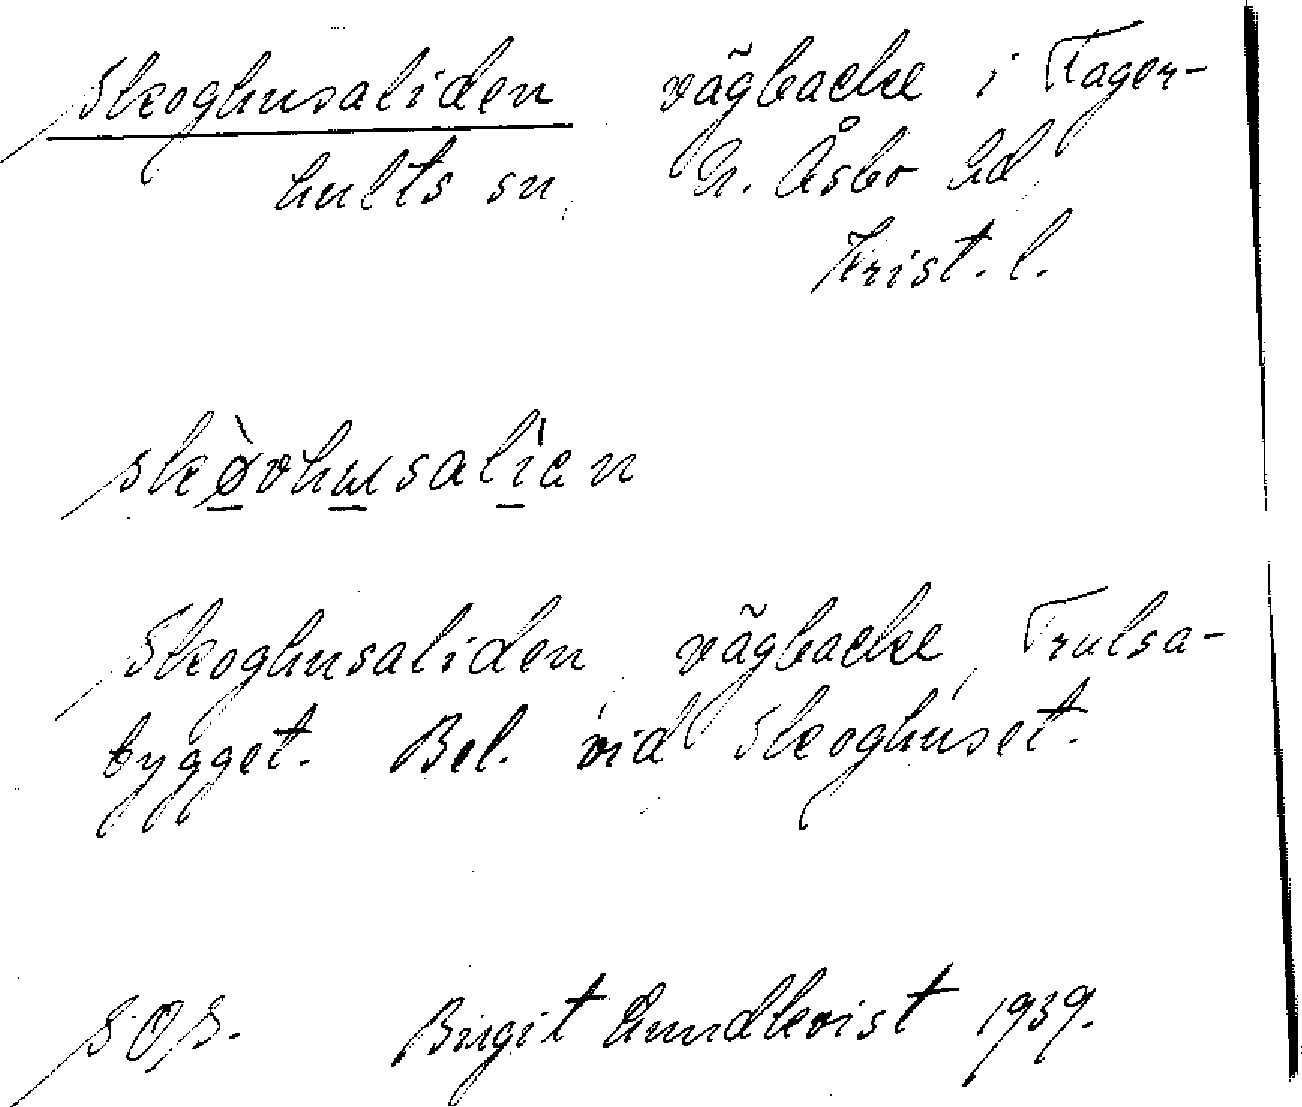 Skoghusaliden vägbacke i Fager-
hults sn, N. Åsbo hd,
Krist. l.
skøvhusalien
Skoghusaliden, vägbacke, Trulsa-
bygget. Bel. vid Skoghuset.
SOS. Birgit Lundkvist 1939.